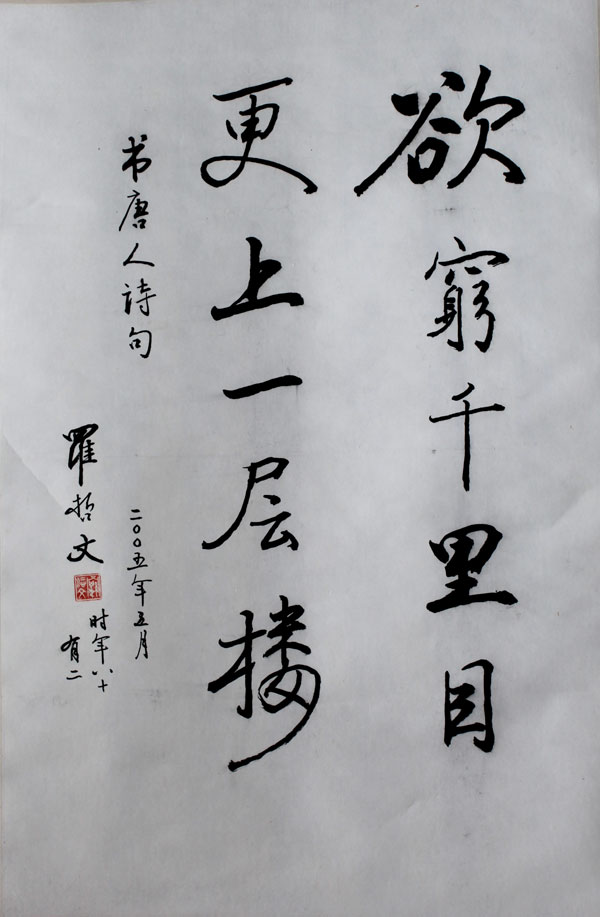 欲窮千里目
更上一层楼
书唐人詩句
二〇〇五年五月
羅哲文
时年八十
有二